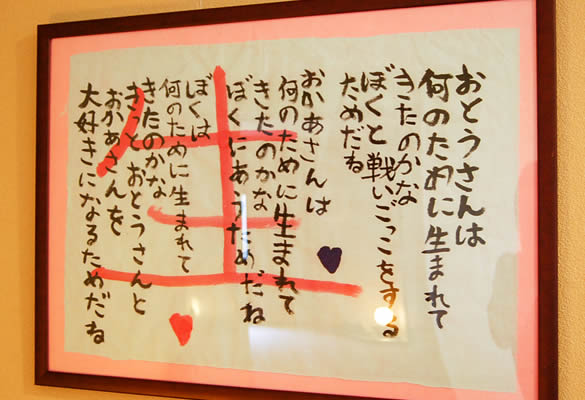 おとうさんは
何のために生まれて
きたのかな
ぼくと戦いごっこをする
ためだね
おかあさんは
何のために生まれて
きたのかな
ぼくにあうためだね
ぼくは
何のために生まれて
きたのかな
きっとおとうさんと
おかあさんを
大好きになるためだね
生